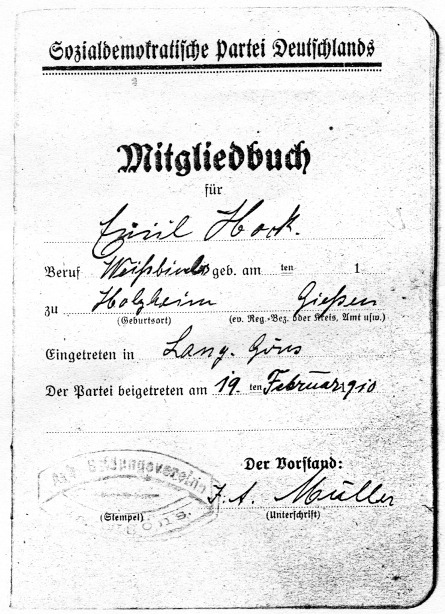 Sozialdemokratische Partei Deutschlands
Mitgliedbuch
für
Emil Hock.
Beruf Weißbinder geb. am ten 1
zu Holzheim Gießen
(Geburtsort) (ev. Reg.-Bez. oder Kreis, Amt usw.)
Eingetreten in Lang. Göns
Der Partei beigetreten am 19 ten Februar 1910
Der Vorstand:
J. A. Müller
(Stempel) (Unterschrift)